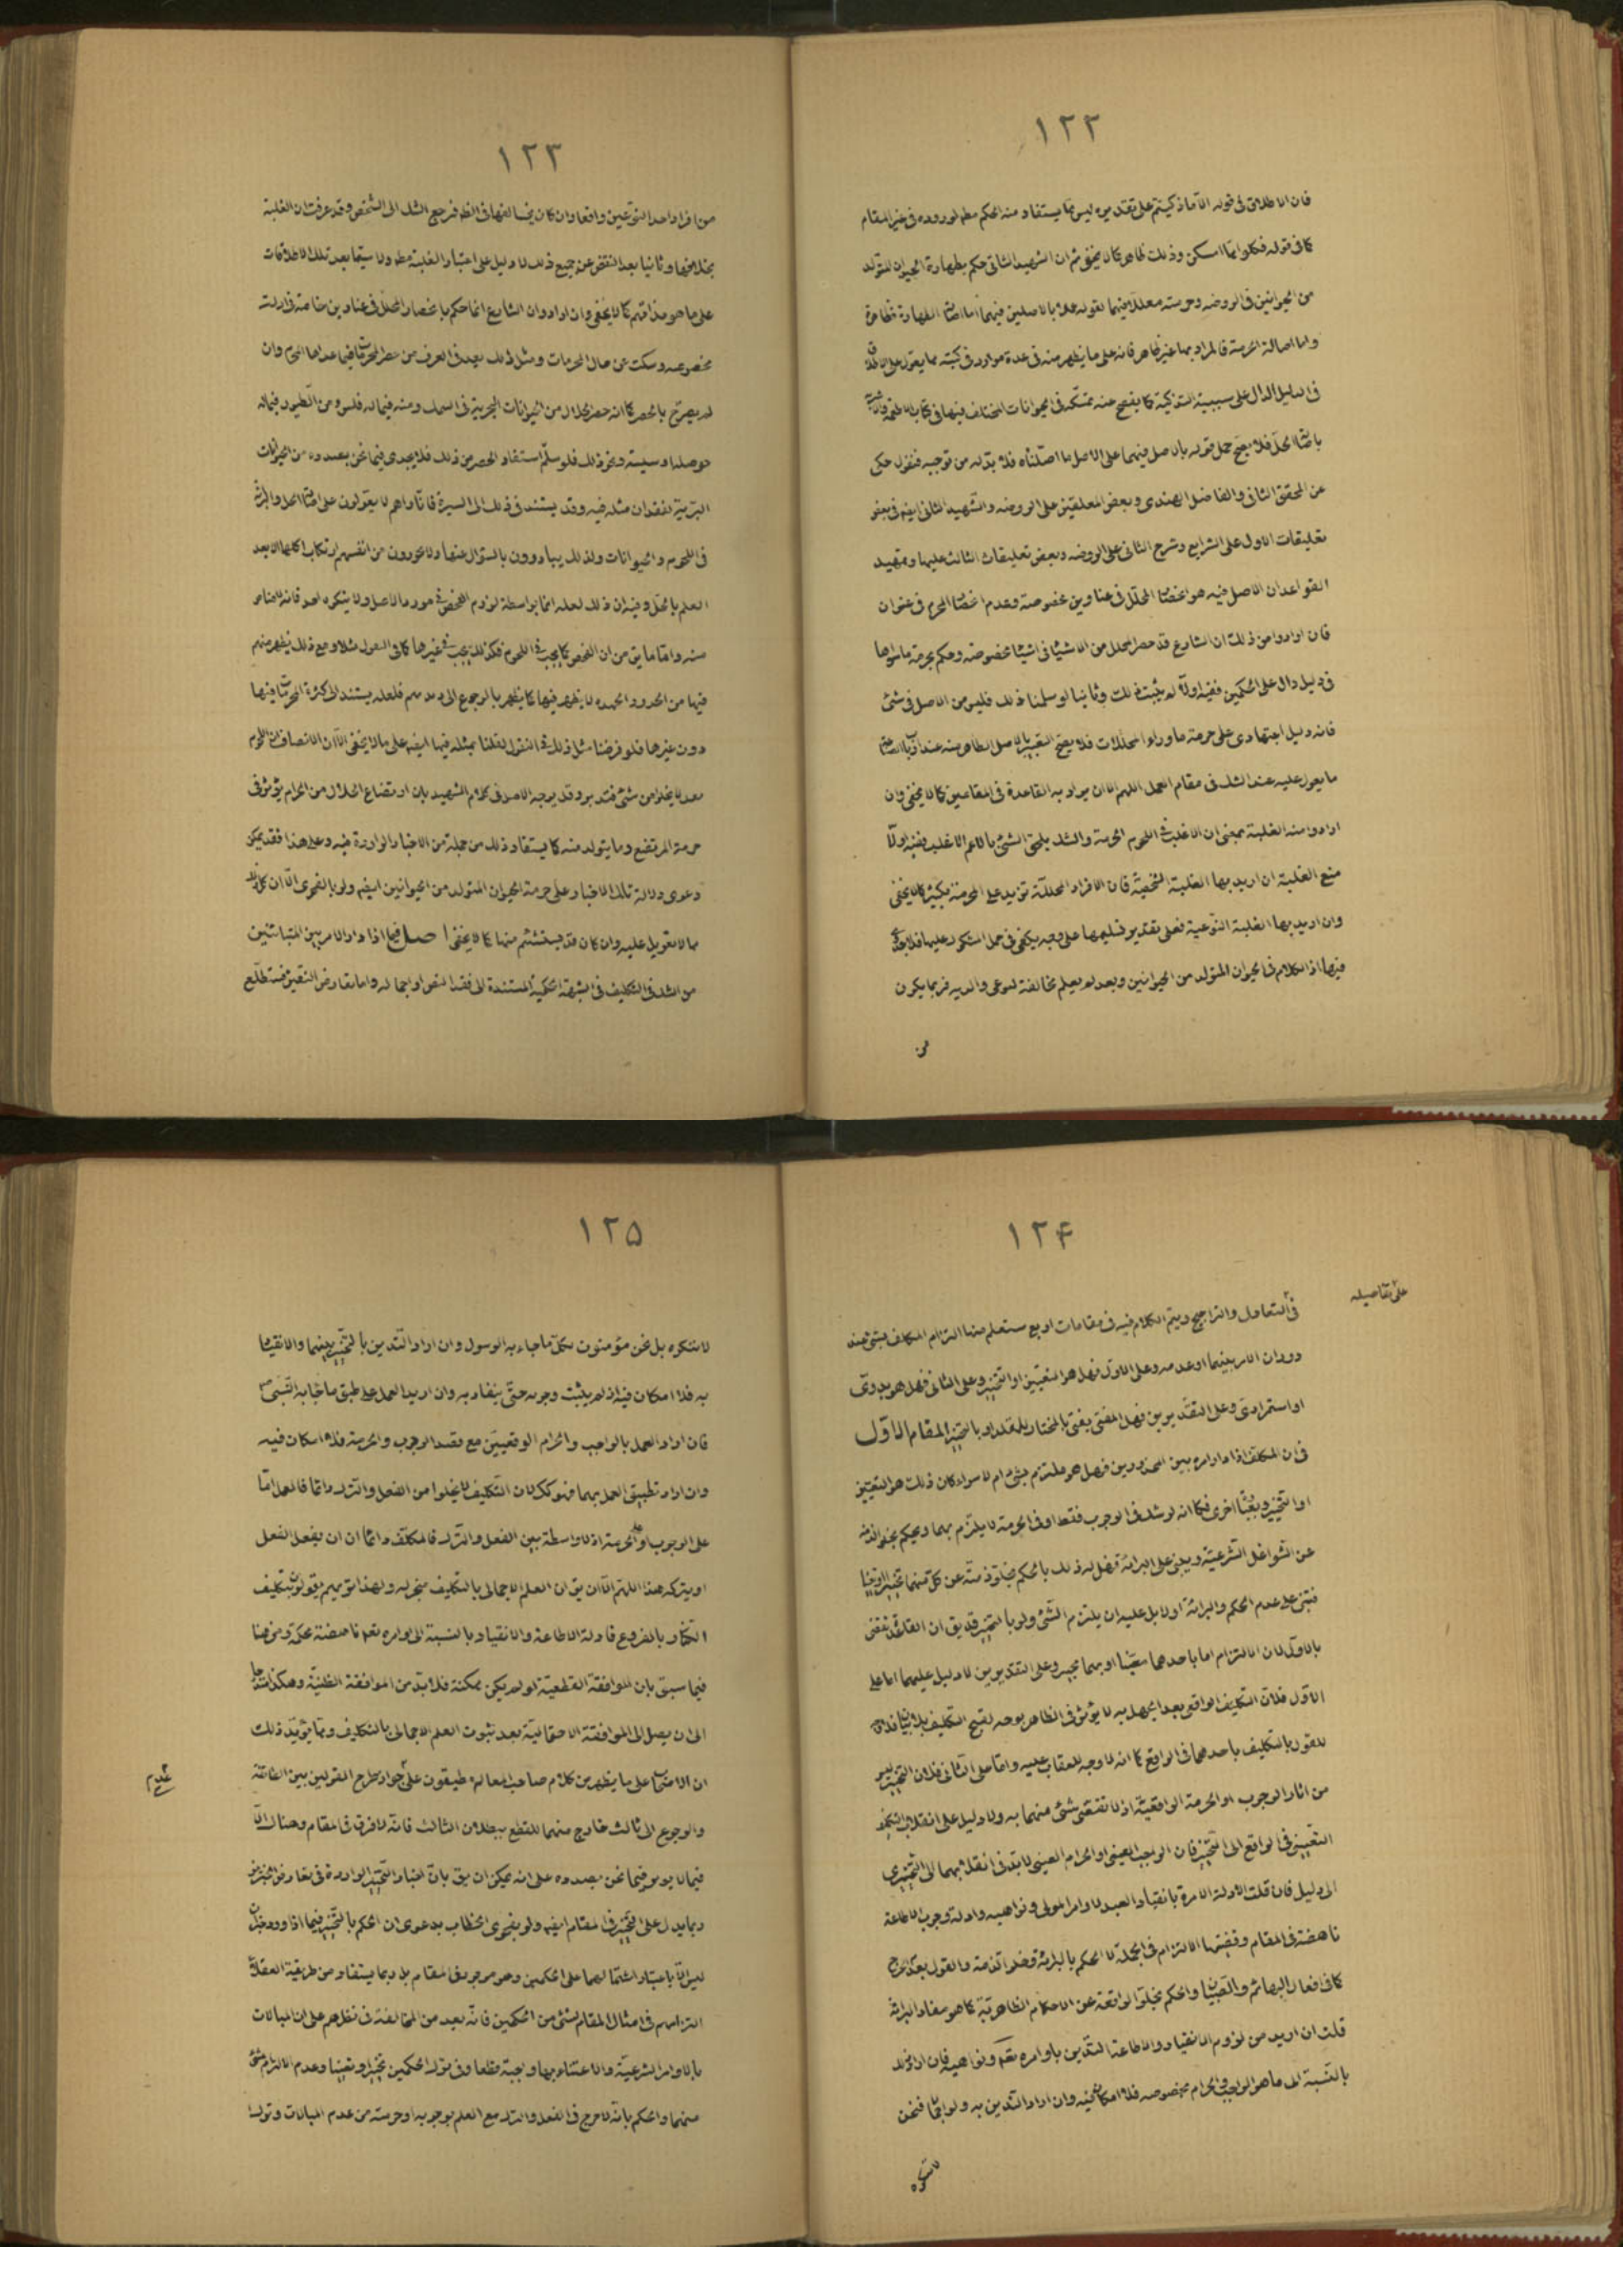 ١٢٢
فان الاطلاق فى قوله الا ما ذكيتم على تقديره ليس مما يستفاد منه الحكم مطم لوروده فى غير المقام
كما فى قوله فكلوا مما امسكن وذلك ظاهر كما لا يخفى ثم ان الشهيد الثانى حكم بطهارة الحيوان المتولد
من الحيوانين فى الروضه وحرمته معللا فيهما بقوله عملا بالاصلين فيهما اما اصالة الطهارة فظاهرة
واما اصالة الحرمة فالمراد بها غير ظاهر فانه على ما يظهر منه فى عدة موارد فى كتبه مما يعول على
فى الدليل الدال على سببية التذكية كما يفصح عنه تمسكه فى الحيوانات المختلف فيها فى كتاب الاطعمة
باصالة الحل فلا يصح حمل قوله بالاصل فيهما على الاصل ما اصلناه فلا بد له من توجيه فنقول حكى
عن المحقق الثانى والفاضل الهندى وبعض المعلقين على الروضه والشهيد الثانى ايضم فى بعض
تعليقات الاول على الشرايع وشرح الثانى على الروضه وبعض تعليقات الثالث عليها وتمهيد
القواعد ان الاصل فيه هو انحصار المحلل فى عناوين مخصوصة وعدم انحصار المحرم فى عنوان
فان ارادوا من ذلك ان الشارع قد حصر المحلل من الاشياء فى اشياء مخصوصه وحكم بحرمة ما سواها
فى دليل دال على الحكمين ففيه اولا لم يثبت ذلك وثانيا لو سلمنا ذلك فليس من الاصل فى شئ
فانه دليل اجتهادى على حرمة ما وراء المحللات فلا يصح التعبير بالاصل الظاهر منه عند
ما يعول عليه عند الشك فى مقام العمل اللهم الا ان يراد به القاعدة فى المقامين كما لا يخفى وان
ارادوا منه الغلبة بمعنى ان الاغلب فى اللحوم الحرمة والشك يلحق الشئ بالاعم الاغلب ففيه اولا
منع الغلبة ان اريد بها الغلبة الشخصية فان الافراد المحللة تزيد على المحرمة بكثير كما لا يخفى
وان اريد بها الغلبة النوعية فعلى تقدير تسليمها على وجه يكفى فى حمل المشكوك عليها فلا يجدى
فيها اذ الكلام فى الحيوان المتولد من الحيوانين وبعد لم يعلم مخالفته لنوعى والديه فربما يكون
من
١٢٣
من افراد احد النوعين واقعا وان كان مخالفها فى الظم فرجع الشك الى الشخص وقد عرفت ان الغلبة
بخلافها وثانيا بعد الغض عن جميع ذلك لا دليل على اعتبار الغلبة مطم ولا سيما بعد تلك الاطلاقات
على ما هو مذاقهم كما لا يخفى وان ارادوا ان الشارع انما حكم بانحصار المحلل فى عناوين خاصة فى ادلة
مخصوصه وسكت عن حال المحرمات ومثل ذلك يعد فى العرف من حصر المحرمات فيما عداها الحرام وان
لم يصرح بالحصر كما انه حصر الحلال من الحيوانات البحرية فى السمك ومنه فيما له فلس ومن الطيور فيما له
حوصلة او سيسة ونحو ذلك فلو سلم استفاد الحصر من ذلك فلا يجدى فيما نحن بصدده من الحيوانات
البرية لفقدان مثله فيه وقد يستند فى ذلك الى السيرة فانا نراهم لا يعولون على اصالة الحل والبرائة
فى اللحوم والحيوانات ولذلك يبادرون بالسؤال عنها ولا يجدون من انفسهم ارتكاب اكلها الا بعد
العلم بالحل وفيه ان ذلك لعله انما بواسطة لزوم الفحص فى مورد الاصل ولا ينكره احد فانه لا مناص
منه واما ما يق من ان الفحص كما يجب فى اللحوم فكذلك يجب فى غيرها كما فى البقول مثلا ومع ذلك يظهر منهم
فيها من الحدود لا يظهر فيها كما يظهر بالرجوع اليهم فلعله يستند الى كثرة المحرمات فيها
دون غيرها فلو فرضنا مثل ذلك فى البقول لقلنا بمثله فيها ايضم على ما لا يخفى الا ان الانصاف ان اللحوم
بعد لا يخلو من شئ فتدبر وقد يوجه الاصل فى كلام الشهيد بان ارتضاع الحلال من الحرام يؤثر فى
حرمة المرتضع وما يتولد منه كما يستفاد ذلك من جملة من الاخبار الواردة فيه وعلى هذا فقد يمكن
دعوى دلالة تلك الاخبار على حرمة الحيوان المتولد من الحيوانين ايضم ولو بالفحوى الا ان كل ذلك
مما لا تعويل عليه وان كان قد يستشم منها كما لا يخفى اصل فيما اذا دار الامر بين المتباينين
من الشك فى التكليف فى الشبهة الحكمية المستندة الى فقد النص او اجماله واما تعارض النصين فستطلع
١٢٤
على تفاصيله
فى التعادل والتراجيح ويتم الكلام فيه فى مقامات اربع ستعلم منها التزام المكلف بشئ عند
دوران الامر بينهما او عدمه وعلى الاول فهل هو التعيين او التخيير وعلى الثانى فهل هو بدوى
او استمرارى وعلى التقديرين فهل المفتى يفتى بالمختار للمقلد او بالتخيير المقام الاول
فى ان المكلف اذا دار امره بين المحذورين فهل هو ملتزم بشئ ام لا سواء كان ذلك هو التعيين
او التخيير وبعبارة اخرى فكما انه لو شك فى الوجوب فقط او فى الحرمة لا يلتزم بهما ويحكم بخلو الذمة
عن الشواغل الشرعية ويبنى على البرائة فهل له ذلك بالحكم بخلو ذمته عن كل منهما تخييرا وتعيينا
فيبنى على عدم الحكم والبرائة او لا بل عليه ان يلتزم الشئ ولو بالتخيير قد يق ان القاعدة تقضى
بالاول لان الالتزام اما باحدهما معينا او بهما تخييرا وعلى التقديرين لا دليل عليهما اما على
الاول فلان التكليف الواقعى بعد الجهل به لا يؤثر فى الظاهر بوجه لقبح التكليف بلا بيان فلا
للقول بالتكليف باحدهما فى الواقع كما انه لا وجه للعقاب عليه واما على الثانى فلان التخيير ليس
من اثار الوجوب او الحرمة الواقعية اذ لا تقتضى شئ منهما به ولا دليل على انقلاب التكليف
التعيينى فى الواقع الى التخيير فان الواجب العينى او الحرام العينى لا بد فى انقلابهما الى التخييرى
الى دليل فان قلت الادلة الامرة بانقياد العبد لاوامر المولى ونواهيه وادلة وجوب الاطاعة
ناهضة فى المقام وقضيتها الالتزام فى الجملة لا الحكم بالبرائة وخلو الذمة والقول بعدم الحرج
كما فى افعال البهائم والصبيان والحكم بخلو الواقعة عن الاحكام الظاهرية كما هو مفاد البرائة
قلت ان اريد من لزوم الانقياد والاطاعة التدين باوامره تعم ونواهيه فان اراد ذلك
بالنسبة الى ما هو الواجب والحرام بخصوصه فلا امكان فيه وان اراد التدين به ولو اجمالا فنحن
لا ننكره
١٢٥
لا ننكره بل نحن مؤمنون بكل ما جاء به الرسول وان اراد التدين بالتخيير بينهما والانقياد
به فلا امكان فيه اذ لم يثبت وجوبه حتى ينقاد به وان اريد العمل على طبق ما جاء به النبى ص
فان اراد العمل بالواجب والحرام الواقعيين مع قصد الوجوب والحرمة فلا امكان فيه
وان اراد تطبيق العمل بهما فهو كك لان التكليف لا يخلوا من الفعل والترك دائما فالعمل اما
على الوجوب او على الحرمة اذ لا واسطة بين الفعل والترك فالمكلف دائما ان يفعل الفعل
او يتركه هذا اللهم الا ان يق ان العلم الاجمالى بالتكليف منجز له ولهذا تريهم يقولون بتكليف
الكفار بالفروع فادلة الاطاعة والانقياد بالنسبة الى اوامره تعم ناهضة محكمة ومن هنا
فيما سبق بان الموافقة القطعية لو لم يكن ممكنة فلا بد من الموافقة الظنية وهكذا
الى ان يصل الى الموافقة الاحتمالية بعد ثبوت العلم الاجمالى بالتكليف ومما يؤيد ذلك
ان الاصحاب على ما يظهر من كلام صاحب المعالم مطبقون على عدم جواز طرح القولين بين الطائفة
والرجوع الى ثالث خارج منهما للقطع ببطلان الثالث فانه لا فرق فى المقام وهناك الا
فيما لا يوثر فيما نحن بصدده على انه يمكن ان يق بان اخبار التخيير الواردة فى تعارض الخبرين
ربما يدل على التخيير فى المقام ايضم ولو بفحوى الخطاب بدعوى ان الحكم بالتخيير فيما اذا ورد خبران
ليس الا باعتبار اشتمالهما على الحكمين وهو موجود فى المقام بل ربما يستفاد من طريقة العقلاء
التزامهم فى امثال المقام بشئ من الحكمين فانه يعد من المخالفة فى نظرهم على ان المبالات
بالاوامر الشرعية والاعتناء بها واجبة قطعا وفى ترك الحكمين تخييرا وتعيينا وعدم الالتزام بشئ
منهما والحكم بانه لا حرج فى الفعل والترك مع العلم بوجوبه او حرمته من عدم المبالات وترك